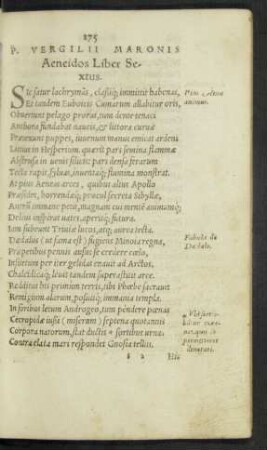 275
P. VERGILII MARONIS
Aeneidos Liber Se-
xtus.
Sic fatur lachrymãs, clasiq; immittit habenas,
Et tandem Euboicis Cumarum allabitur oris,
Obuertunt pelago proras, tum dente tenaci
Anchora fundabat naueis, & littora curuæ
Prætexunt puppes, iuuenum manus emicat ardens
Littus in Hesperium. quærit pars semina flammæ
Abstrusa in uenis silicis: pars densa ferarum
Tecta rapit sylvas, inuentaq; flumina monstrat.
At pius Aeneas arces, quibus altus Apollo
Præsidet, horrendæq; procul secreta Sibyllæ,
Antrum immane petit, magnam cui mentẽ animumq;
Delius inspirat uates, aperitq; futura.
Iam subeunt Triuiæ lucos, atq; aurea tecta.
Dædalus (ut fama est) fugiens Minoia regna,
Præpetibus pennis ausus se credere cœlo,
Insuetum per iter gelidas enauit ad Arctos,
Chalcidicaq; leuis tandem super astitit arce.
Redditus his primum terris, tibi Phœbe sacrauit
Remigium alarum, posuitq; immania templa.
In foribus letum Androgeo, tum pendere pœnas
Cecropidæ iussi (miserum) septena quotannis
Corpora natorum, stat ductis sortibus urna.
Contra elata mari respondet Gnosia tellus.
Fabula de
Dædalo.